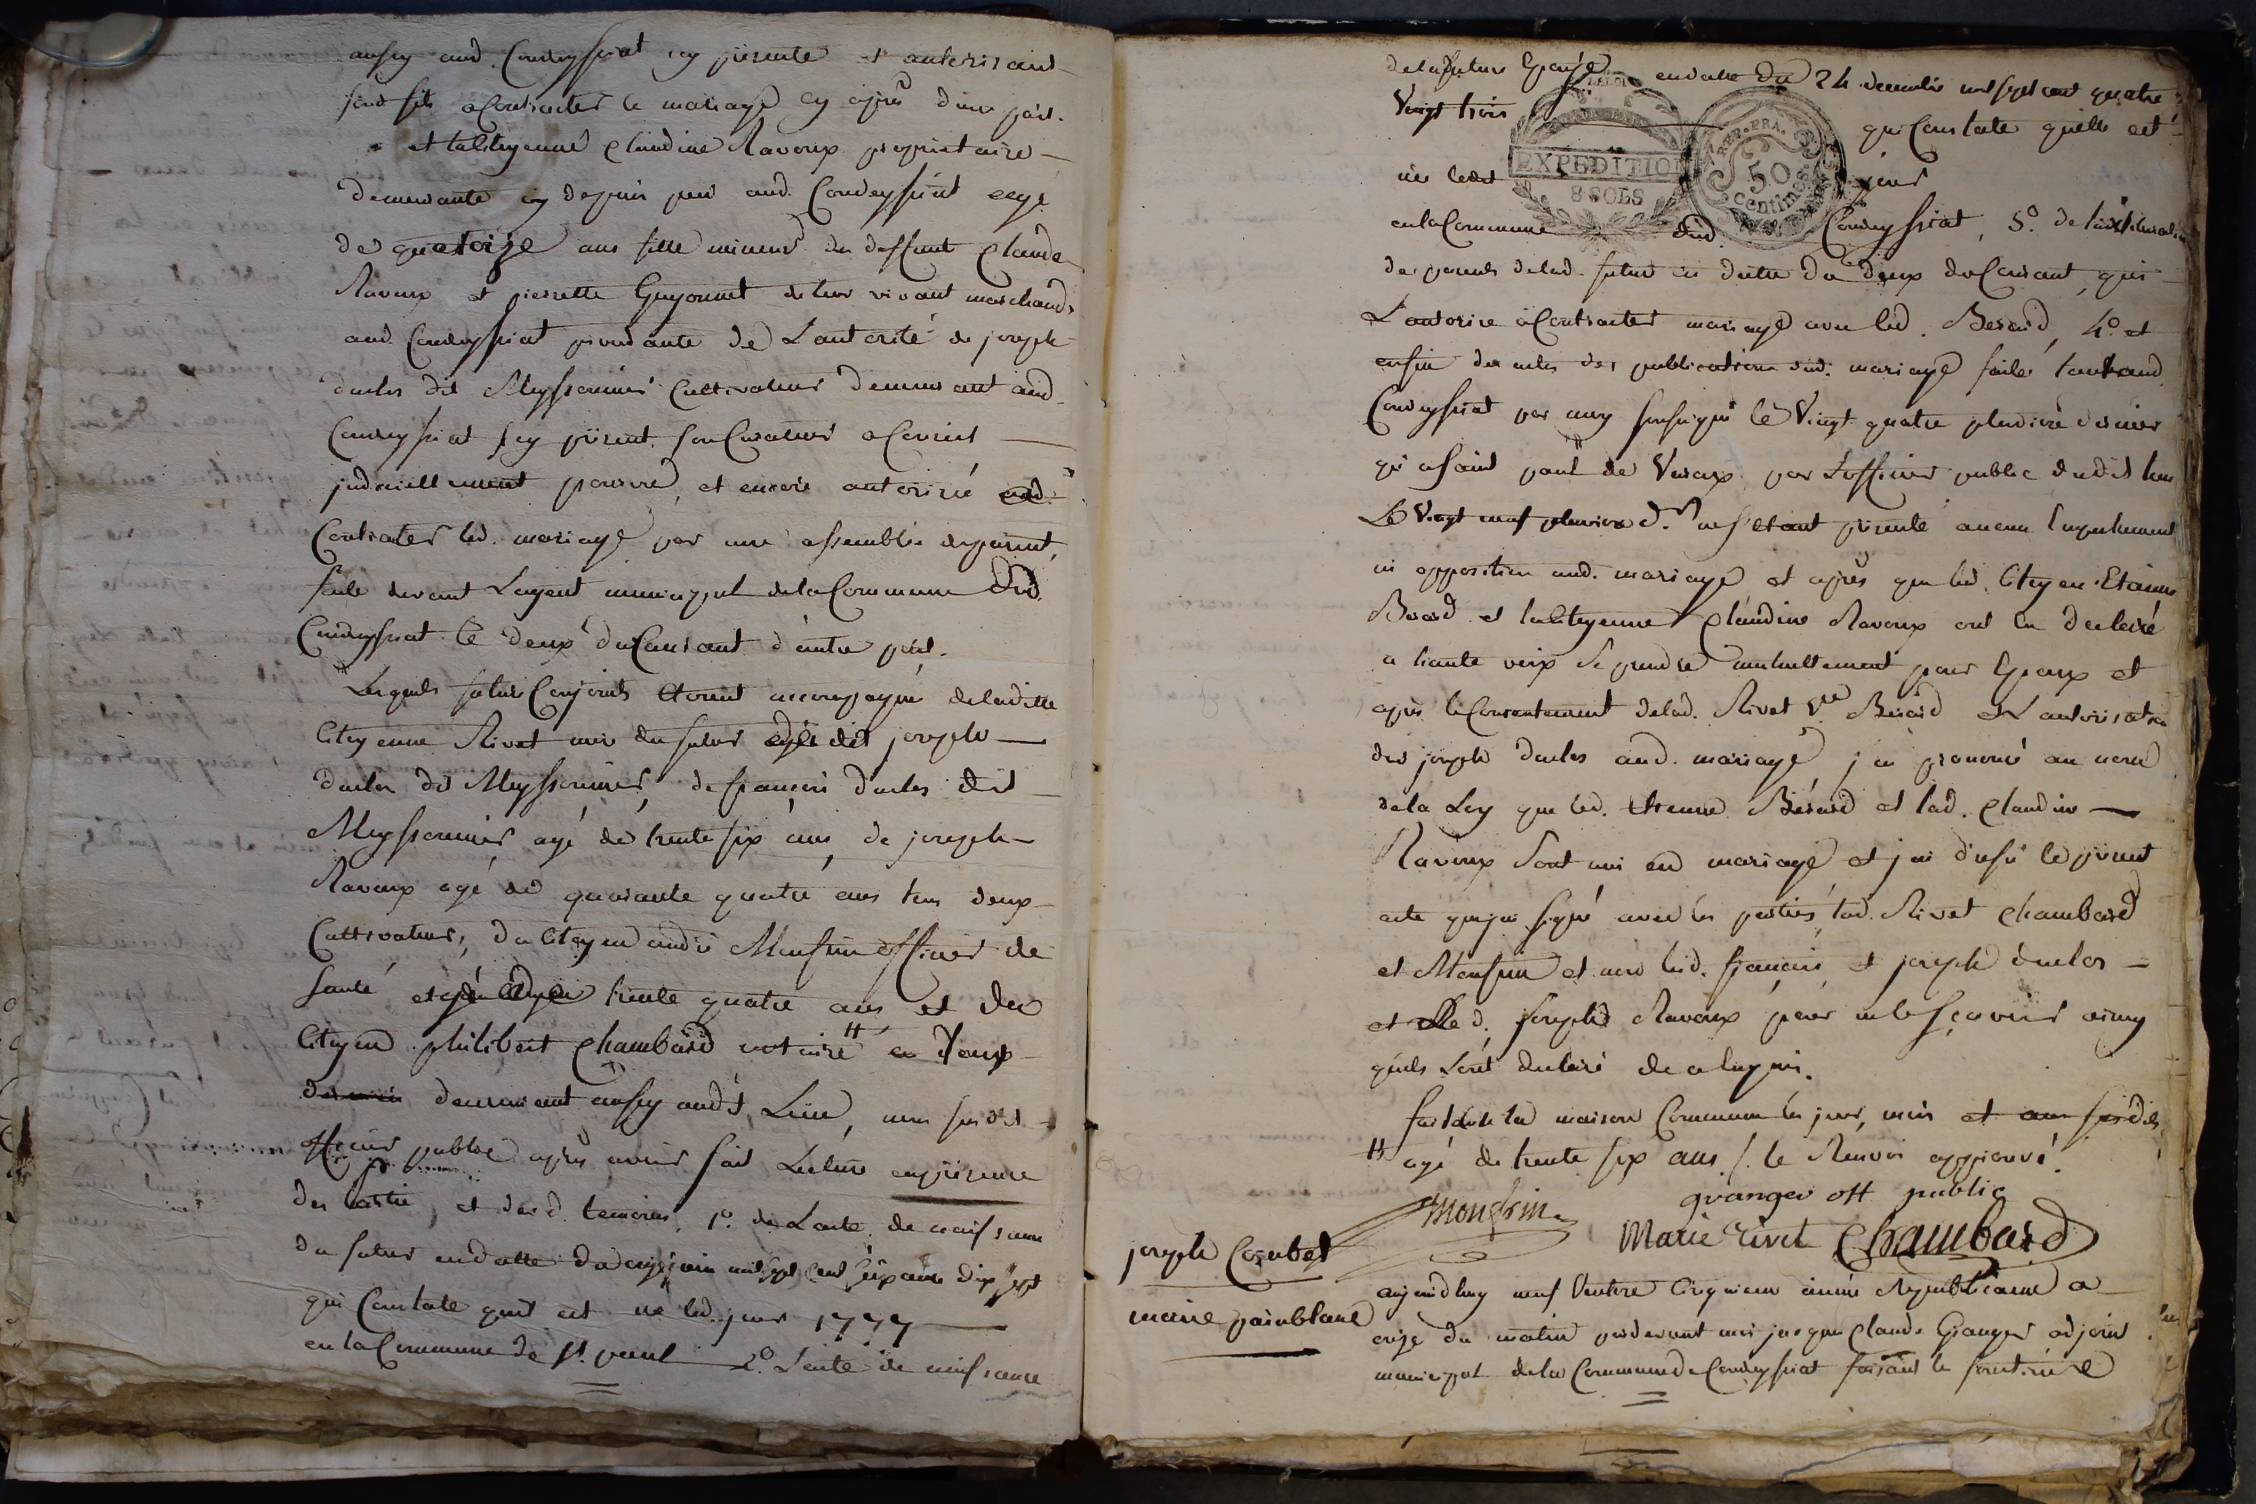 aussy aud. Condeyssiat cy présente et autorisant
sond. fils a Contracter le mariage cy après d'une part.
et la Citoyenne Claudine Ravoux propriétaire
demeurante cy depuis peu aud. Condeyssiat agé
de quatorze ans fille mineure du deffunt Claude
Ravoux et pierrette Guyonnet de leur vivant marchands
aud. Condeyssiat procédante de L'autorité de joseph
duclos dit Meyssonnier Cultivateur demeurant aud.
Condeyssiat cy présent, son Curateur
judiciellement pourvu, et encore autorisée
Contracter led. mariage par une assemblée de parents
faite devant L'agent municipal de la Commune dud.
Condeyssiat le deux du Courant d'autre part.
Lesquels futurs Conjoints étoient accompagné de laditte
Citoyenne Rivet mère du futur dudit joseph
duclos dit Meyssonnier, de françois duclos dit
Meyssonnier agé de trente six ans, de joseph
Ravoux agé de quarante quatre ans tous deux
Cultivateurs, du Citoyen andré Monfrin officier de
santé agé de trente quatre ans et du
Citoyen philibert Chambard notaire # deux
demeurant aussy audit Lieu, moi susdit
officier public après avoir fait Lecture en présence
des partie, et desd. temoins, 1º. de L'acte de naissance
du futur en datte du juin mil sept cent soixante dix sept
qui Constate qu'il est né led. jour 1777
en la Commune de St. paul 2º. L'acte de naissance
de la future Epouse en datte du 24 decembre mil sept cent quatre
Vingt trois qui Constate quelle est
née ledit jour
EXPEDITION
8 SOLS
REP. FRA.
50
centimes
en la Commune dud. Condeyssiat, 3º. de la délibération
des parents de lad. future en datte du deux du Courant, qui
L'autorise à Contracter mariage avec led. Berard, 4º. et
enfin des actes des publications dud. mariage faites tant aud.
Condeyssiat par moy soussigné le Vingt quatre pluviose dernier
qu'a saint paul de Varax par L'officier public dudit lieu
Le Vingt neuf pluviose d.er ne s'étant présenté aucun Empechement
ni opposition aud. mariage et après que led. Citoyen Etienne
Berard et la Citoyenne Claudine Ravoux ont eu déclaré
a haute voix se prendre mutuellement pour Epoux et
après le Consentement de lad. Rivet Vve Berard et L'autorisation
dud joseph duclos aud. mariage, j'ai prononcé au nom
de la Loy que led. Etienne Bérard et lad. Claudine
Ravoux sont uni en mariage et j'ai dressé le présent
acte que j'ai signé avec les parties, lad. Rivet Chambard
et Monfrin et non lesd. françois et joseph duclos
et led. joseph Ravoux pour ne le sçavoir ainsy
qu'ils l'ont declaré de ce enquis.
fait dans la maison Commune les jour, mois et an susdits,
# agé de trente six ans /. le Renvoi approuvé.
Monfrin
granger off public
Marie rivet Chambard
joseph Corubet
marie painblanc
aujourd'huy neuf Ventose Cinquieme année Républicaine a
onze du matin pardevant moi jacques Claude Granger adjoint
municipal de la Commune de Condeyssiat faisant les fonctions